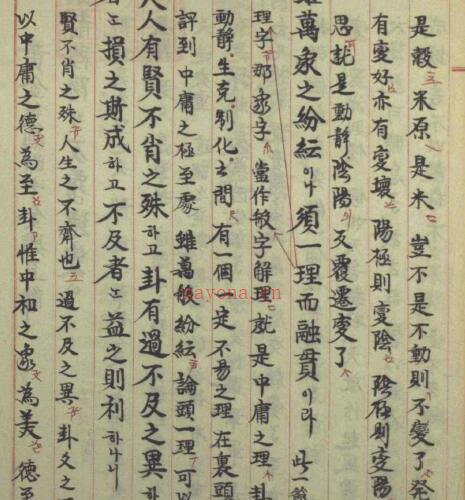 是穀米原是米豈不是不動則不變了發
有變好亦有變壞陽極則變陰陰極則變陽
思說是動靜陰陽反覆遷變了
萬象之紛紜이나須一理而融貫이라此一
理字那象字當作般字解理就是中庸之理卦
動靜生克制化去間有一個一定不易之理在裏頭
評到中庸之極至處雖萬般紛紜論頭一理可以
人有賢不肖之殊하고卦有過不及之異하
者는損之斯成하고不及者는益之則利하나니
賢不肖之殊人生之不齊也過不及之異卦爻之
以中庸之德為至卦惟中和之象為美德至